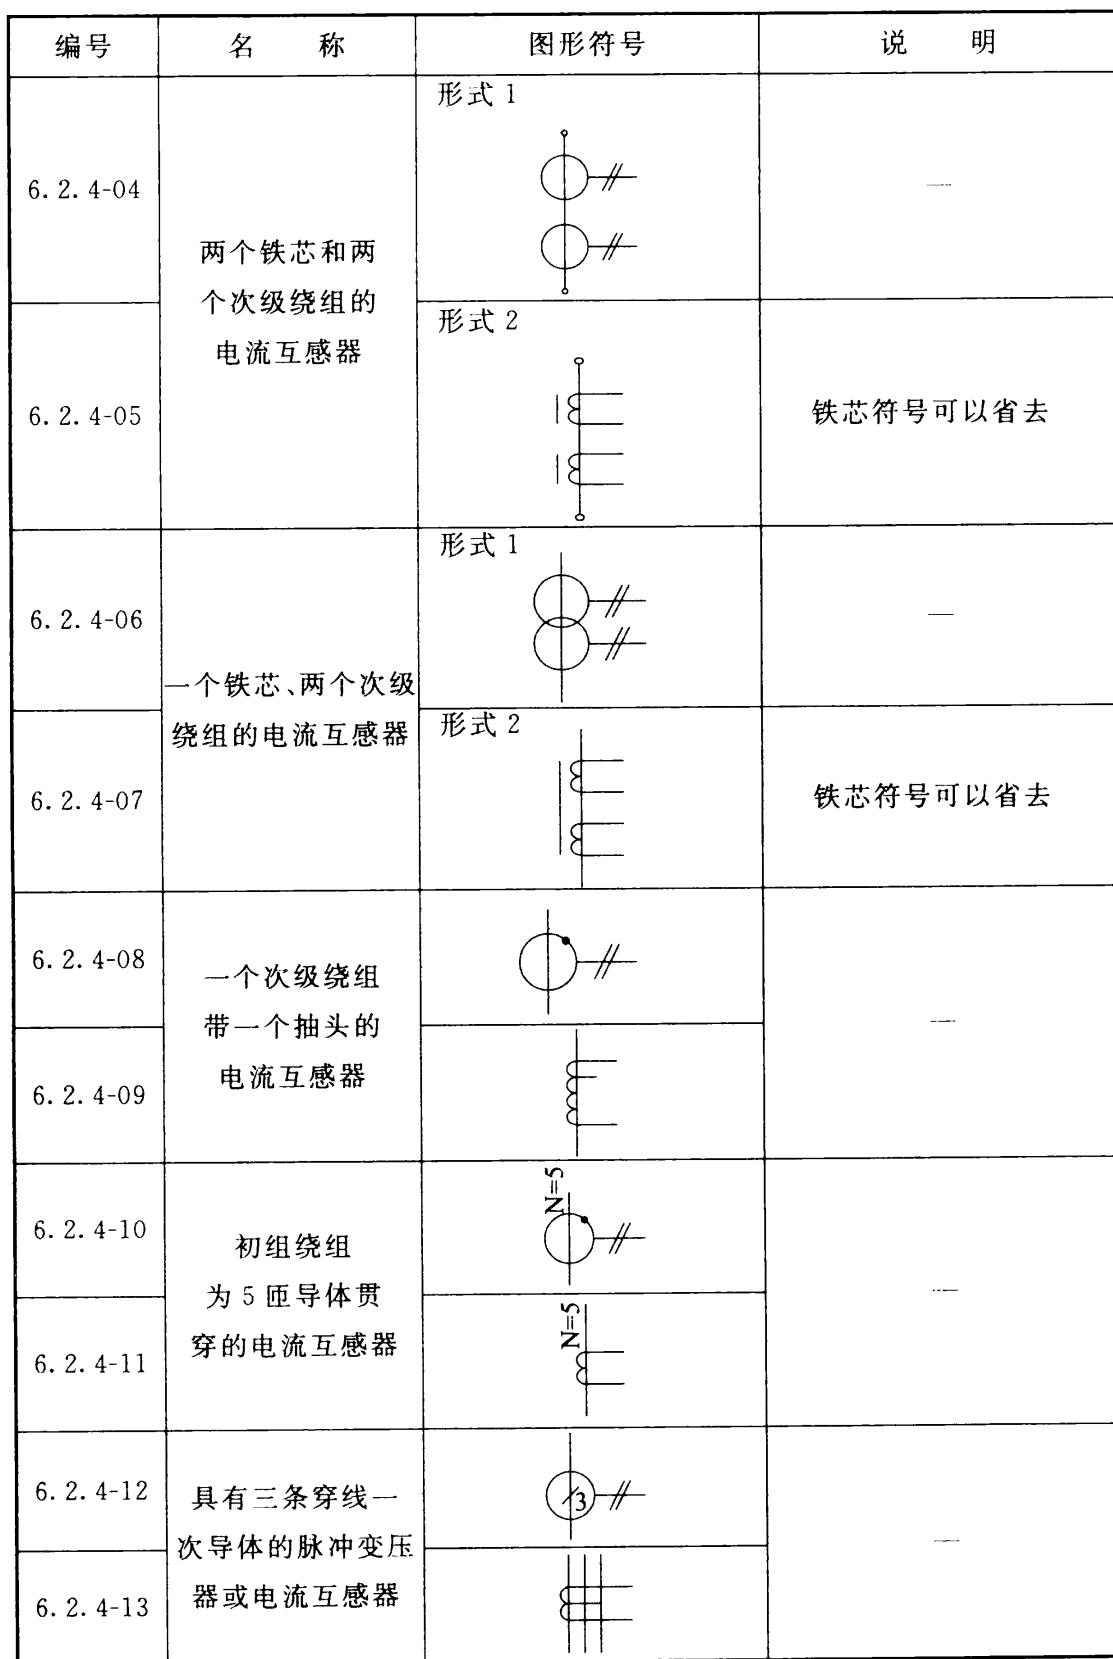 编号 名 称 图形符号 说 明
形式 1
6.2.4-04
—
两个铁芯和两
个次级绕组的
电流互感器
形式 2
6.2.4-05
铁芯符号可以省去
形式 1
6.2.4-06
—
一个铁芯、两个次级
绕组的电流互感器
形式 2
6.2.4-07
铁芯符号可以省去
6.2.4-08
一个次级绕组
带一个抽头的
电流互感器
—
6.2.4-09
N=5
6.2.4-10
初组绕组
为 5 匝导体贯
穿的电流互感器
—
N=5
6.2.4-11
6.2.4-12
3
具有三条穿线一
次导体的脉冲变压
器或电流互感器
—
6.2.4-13